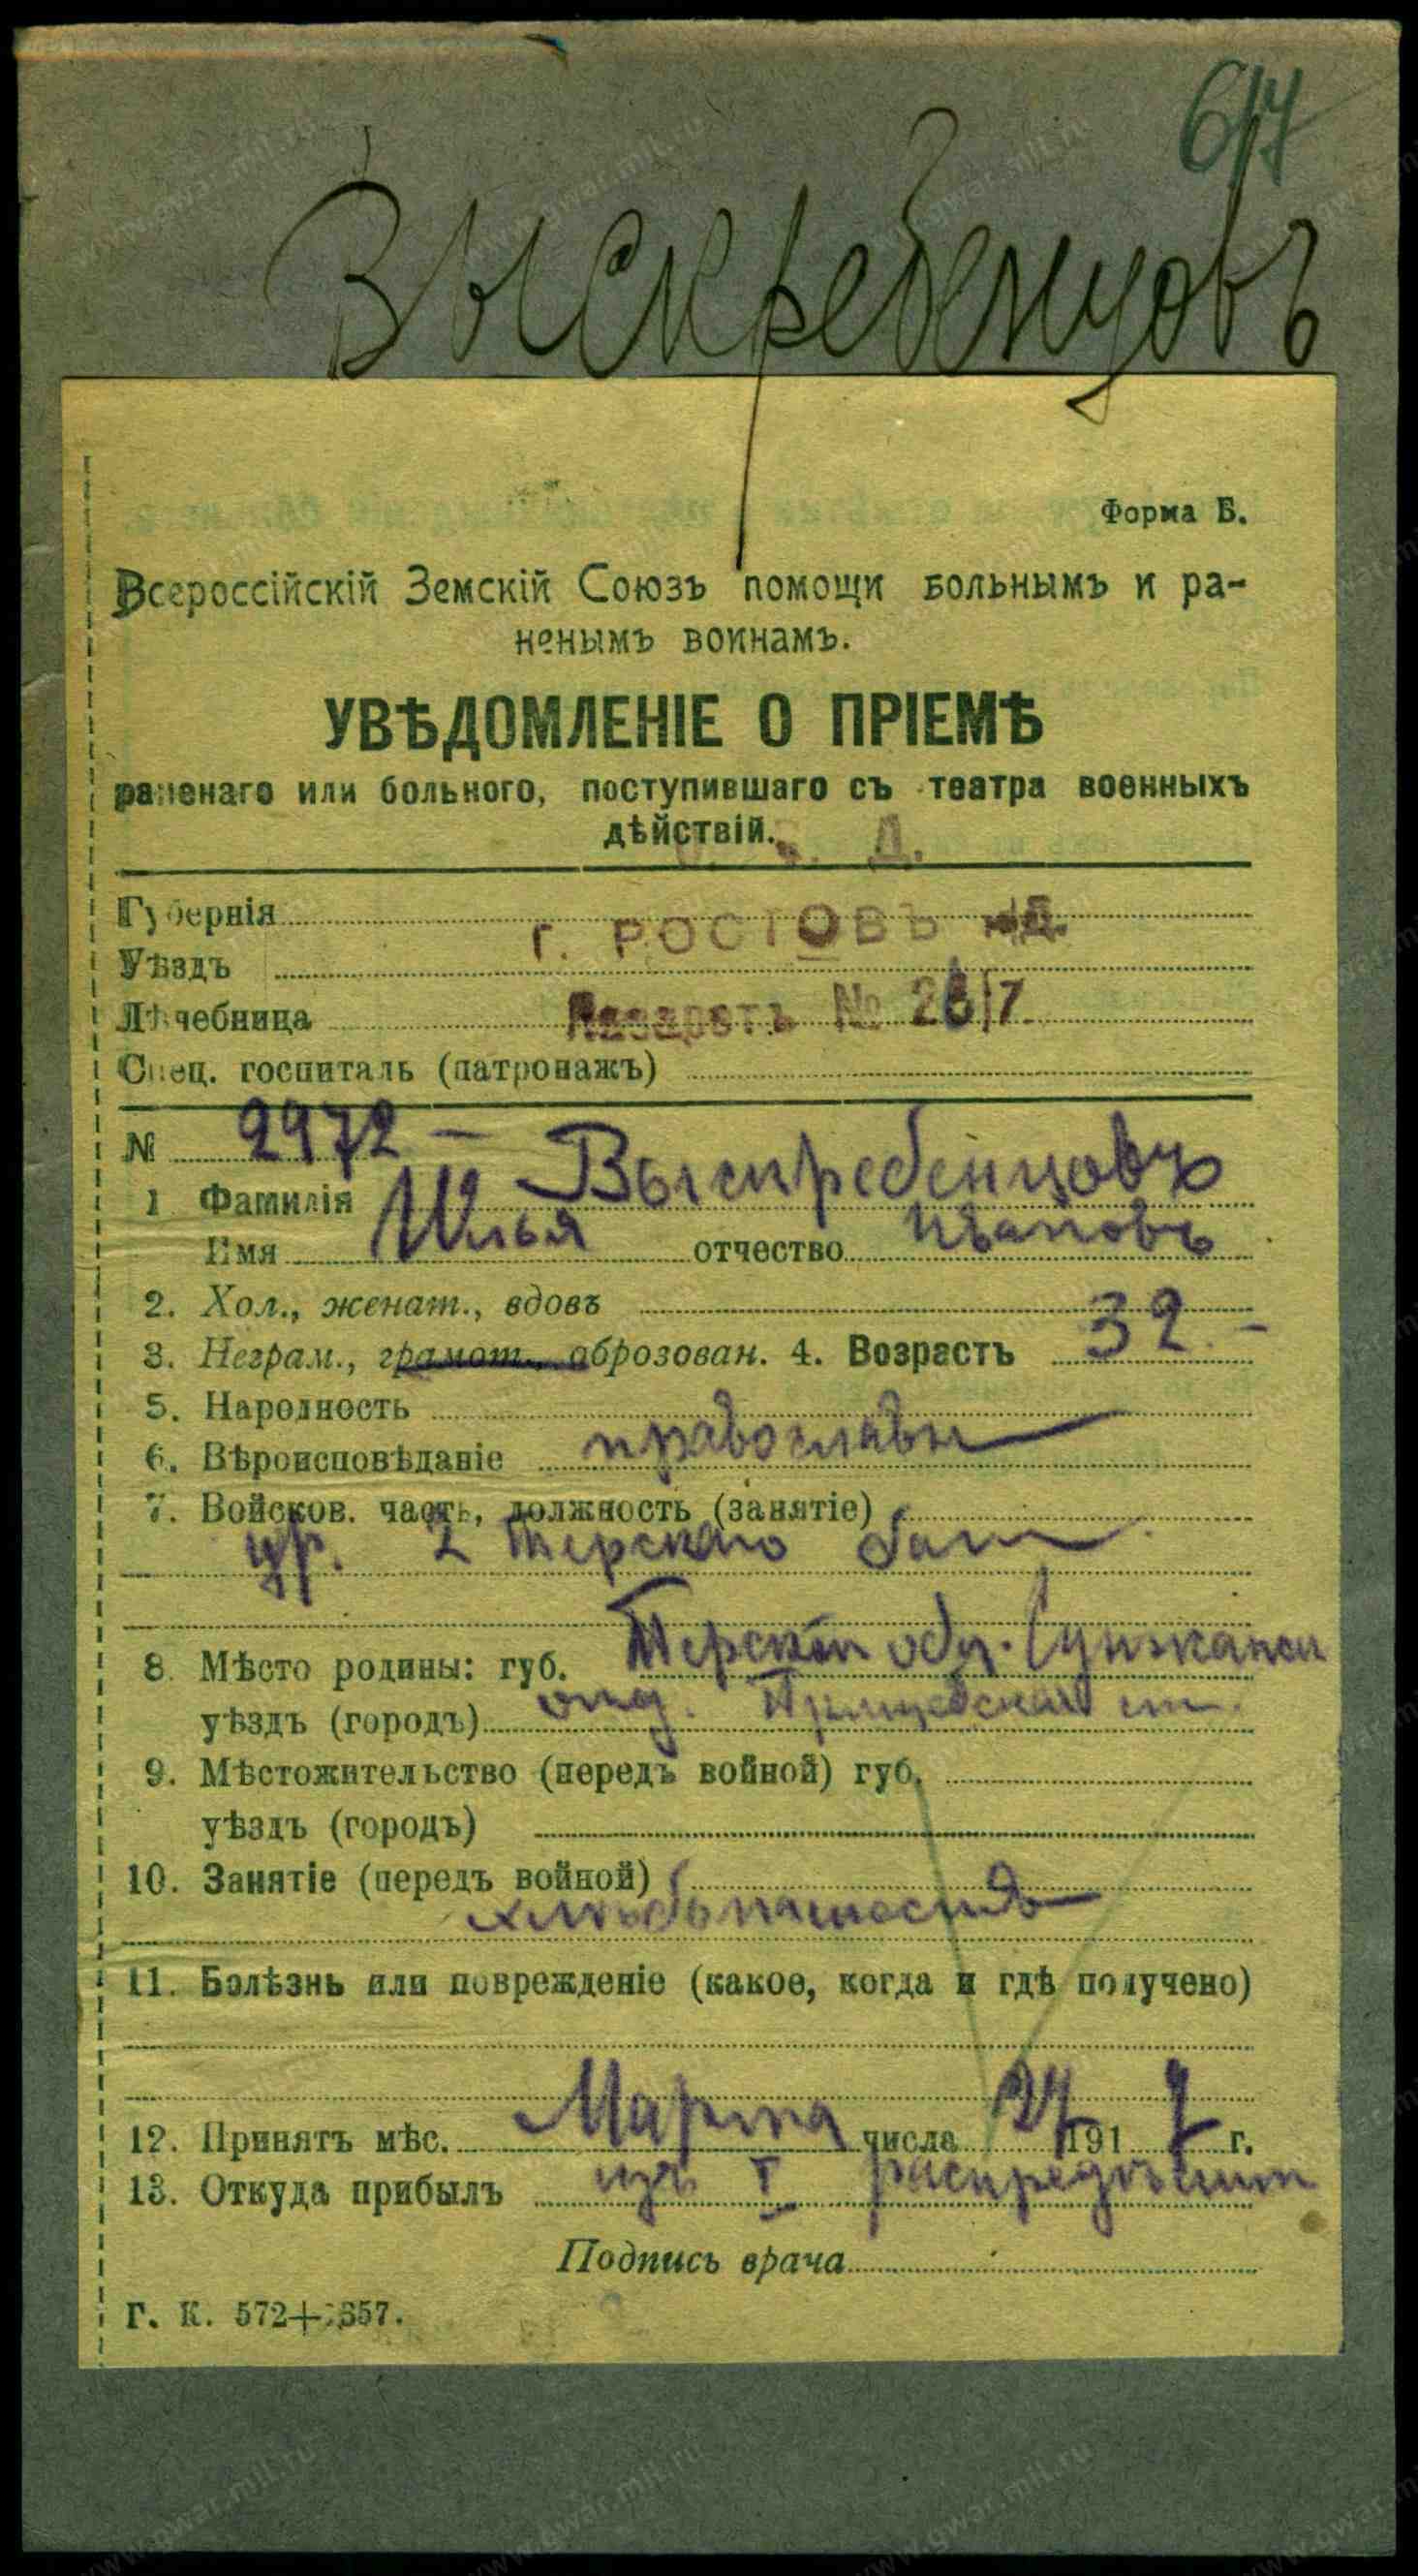 6/4
Выскребенцовъ
Форма Б.
Всероссійскій Земскій Союзъ помощи больнымъ и ра-
ненымъ воинамъ.
УВѢДОМЛЕНІЕ О ПРІЕМѢ
раненаго или больного, поступившаго съ театра военныхъ
дѣйствій.
Губернія
г. РОСТОВЪ н/Д.
Уѣздъ
Лѣчебница Лазаретъ № 26/7
Спец. госпиталь (патронажъ)
№ 2972 –
1 Фамилія Выскребенцовъ
Имя Илья отчество Ивановъ
2. Хол., женат., вдовъ
3. Неграм., грамот., аброзован. 4. Возрастъ 32 –
5. Народность
6. Вѣроисповѣданіе православн
7. Войсков. часть, должность (занятіе)
ур. 2 Терскаго бат
8. Мѣсто родины: губ. Терской обл.
уѣздъ (городъ) отд. ст.
9. Мѣстожительство (передъ войной) губ.
уѣздъ (городъ)
10. Занятіе (передъ войной)
хлѣбопашество
11. Болѣзнь или поврежденіе (какое, когда и гдѣ получено)
12. Принятъ мѣс. Марта числа 24 191 7 г.
13. Откуда прибылъ изъ I распредѣлит
Подпись врача
Г. К. 572+ 357.
www.gwar.mil.ru